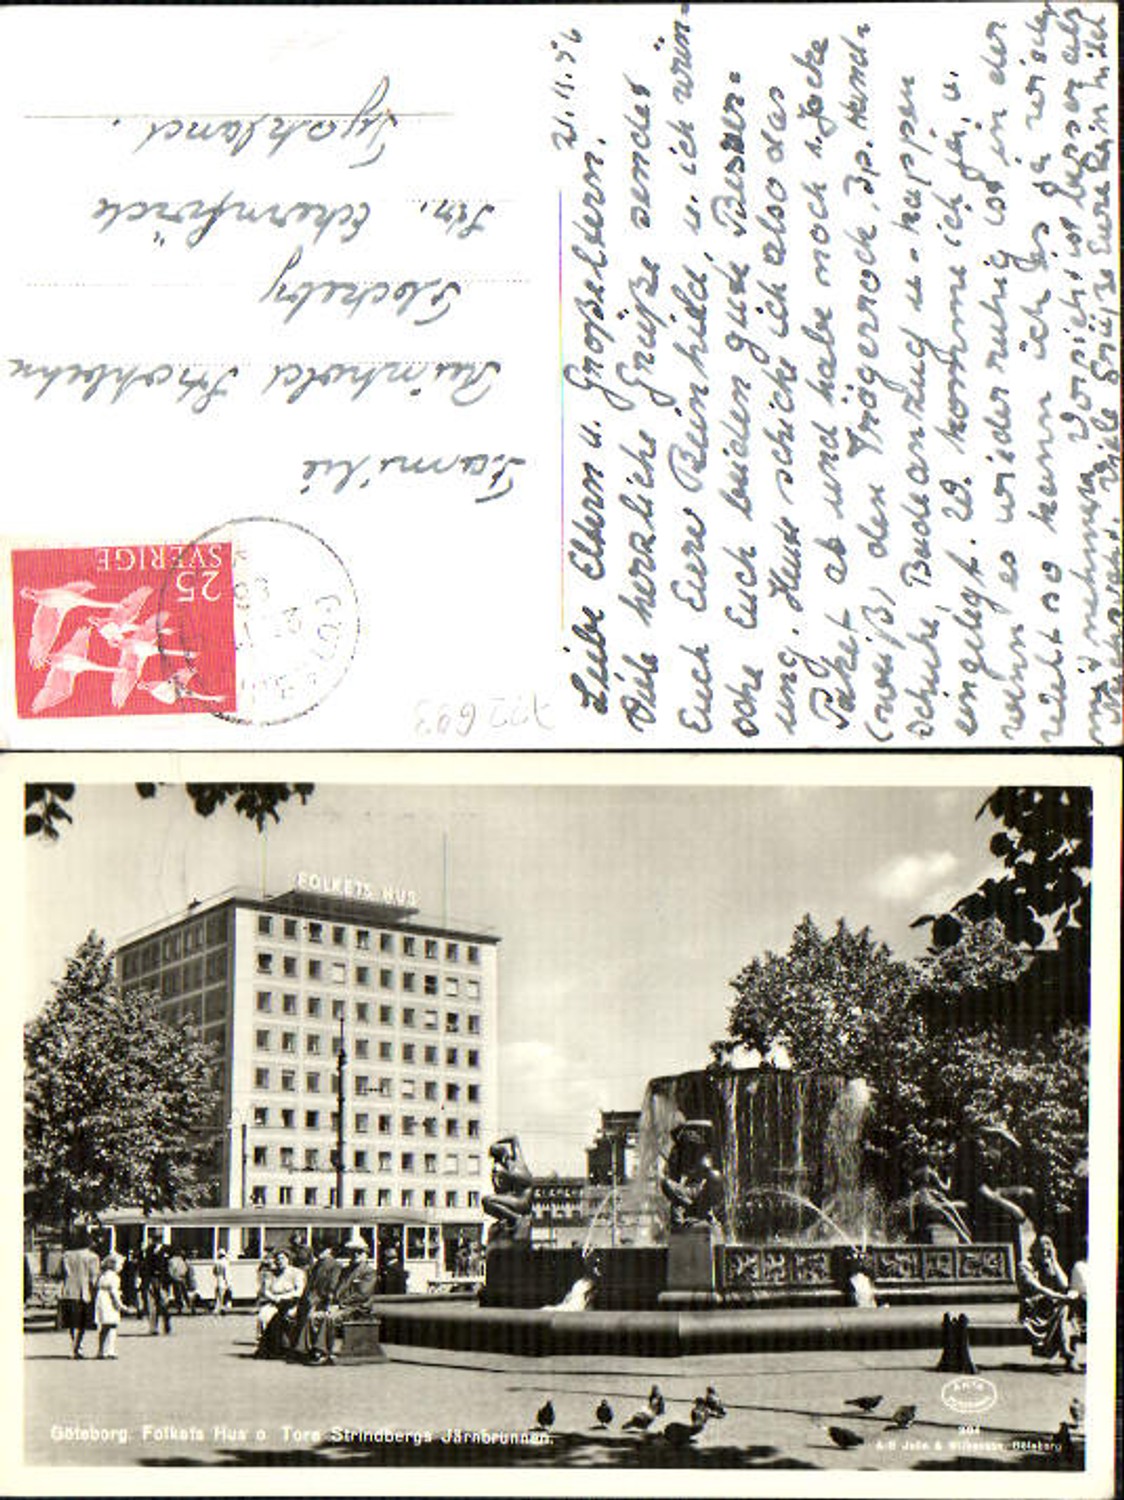 21.11.56
Liebe Eltern u. Großeltern.
Viele herzliche Grüße sendet
Euch Eure Reinhild, u. ich wün-
sche Euch beiden gute Besser-
ung. Heute schicke ich also das
Paket ab und habe noch 1 Jacke
(weiß) den Trägerrock, 3 p. Hand-
schuhe, Badeanzug u. kappen
eingelegt. W. komme ich ja, u.
wenn es wieder ruhig ist in der
Welt so kann ich es ja wieder
mitnehmen, Vorsicht ist besser als
Nachsicht. Viele Grüße Eure Reinhild
Familie
Reinhold
Flockeby
Krr. Eckernförde
SVERIGE
25
722693
FOLKETS HUS
Göteborg. Folkets Hus o. Tore Strindbergs Järnbrunnen.